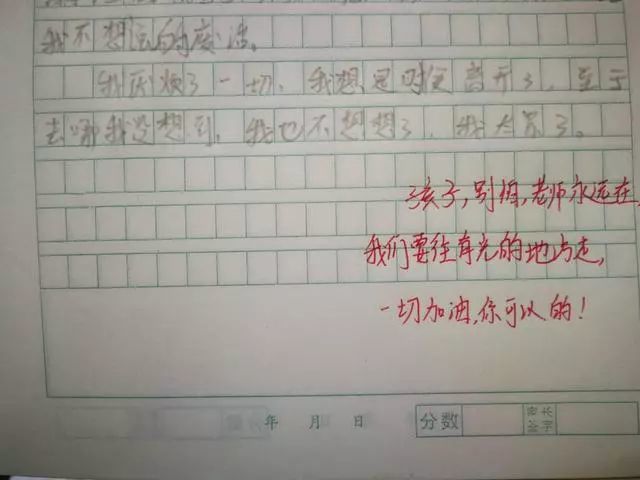 我不想过的废活。
我厌烦了一切，我想是时候离开了，至于
去哪我没想到，我也不想想了，我太累了。
孩子，别怕，老师永远在，
我们要往有光的地方走，
一切加油，你可以的！
年 月 日 分数 家长签字